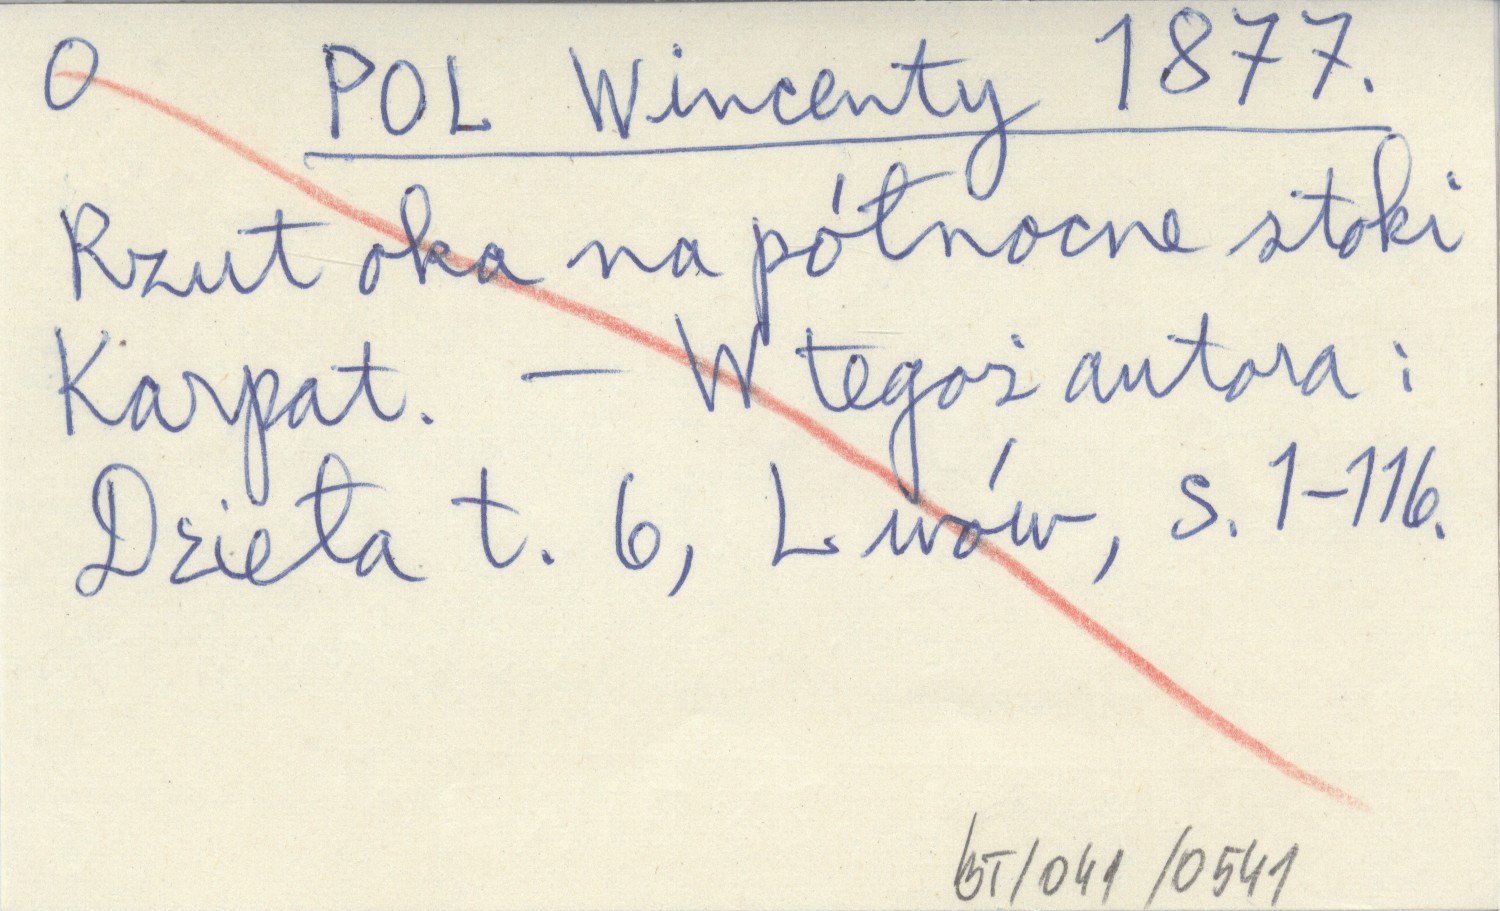 O POL Wincenty 1877.
Rzut oka na północne stoki
Karpat. — W tegoż autora:
Dzieła t. 6, Lwów, s. 1-116.
BT/041/0541